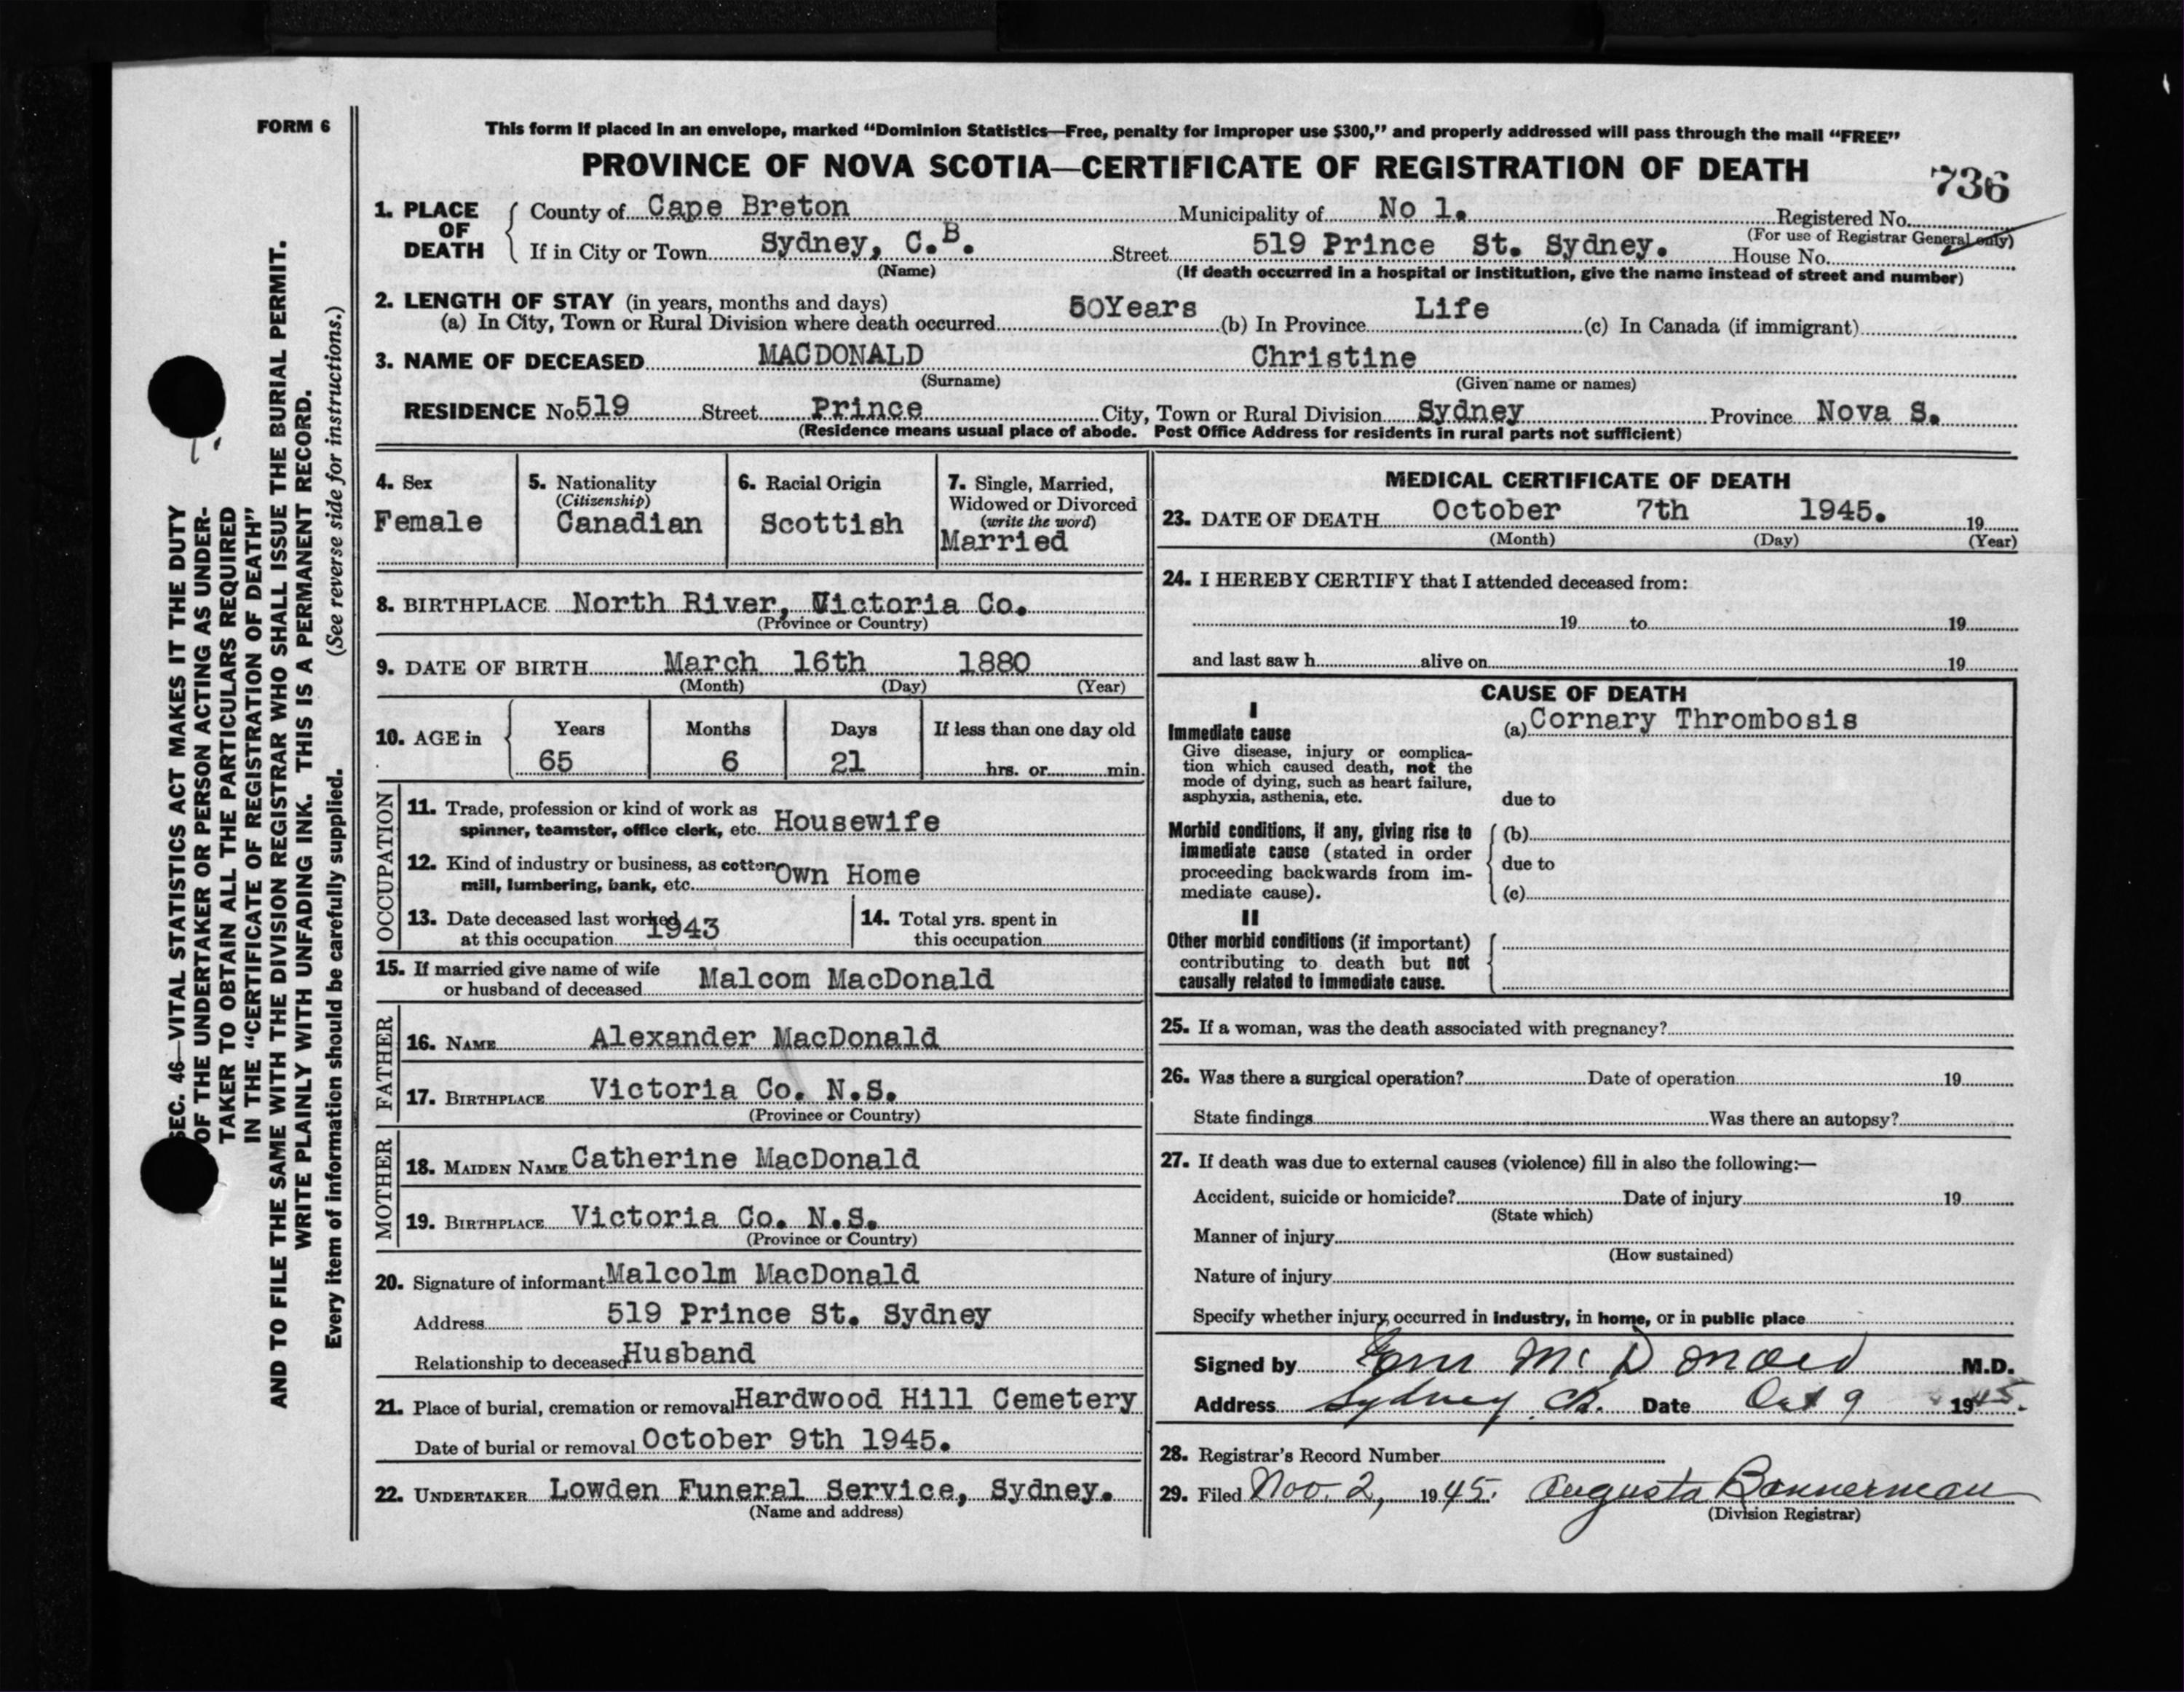 FORM 6
This form if placed in an envelope, marked "Dominion Statistics—Free, penalty for improper use $300," and properly addressed will pass through the mail "FREE"
PROVINCE OF NOVA SCOTIA—CERTIFICATE OF REGISTRATION OF DEATH
736
1. PLACE OF DEATH County of Cape Breton Municipality of No 1. Registered No.
(For use of Registrar General only)
If in City or Town Sydney, C.B. Street 519 Prince St. Sydney. House No.
(Name) (If death occurred in a hospital or institution, give the name instead of street and number)
2. LENGTH OF STAY (in years, months and days)
(a) In City, Town or Rural Division where death occurred 50Years (b) In Province Life (c) In Canada (if immigrant)
3. NAME OF DECEASED MACDONALD Christine
(Surname) (Given name or names)
RESIDENCE No 519 Street Prince City, Town or Rural Division Sydney Province Nova S.
(Residence means usual place of abode. Post Office Address for residents in rural parts not sufficient)
4. Sex
Female
5. Nationality
(Citizenship)
Canadian
6. Racial Origin
Scottish
7. Single, Married,
Widowed or Divorced
(write the word)
Married
8. BIRTHPLACE North River, Victoria Co.
(Province or Country)
9. DATE OF BIRTH March 16th 1880
(Month) (Day) (Year)
10. AGE in Years Months Days If less than one day old
65 6 21 hrs. or min.
OCCUPATION
11. Trade, profession or kind of work as
spinner, teamster, office clerk, etc. Housewife
12. Kind of industry or business, as cotton
mill, lumbering, bank, etc. Own Home
13. Date deceased last worked
at this occupation 1943
14. Total yrs. spent in
this occupation
15. If married give name of wife
or husband of deceased Malcom MacDonald
FATHER
16. NAME Alexander MacDonald
17. BIRTHPLACE Victoria Co. N.S.
(Province or Country)
MOTHER
18. MAIDEN NAME Catherine MacDonald
19. BIRTHPLACE Victoria Co. N.S.
(Province or Country)
20. Signature of informant Malcolm MacDonald
Address 519 Prince St. Sydney
Relationship to deceased Husband
21. Place of burial, cremation or removal Hardwood Hill Cemetery
Date of burial or removal October 9th 1945.
22. UNDERTAKER Lowden Funeral Service, Sydney.
(Name and address)
MEDICAL CERTIFICATE OF DEATH
23. DATE OF DEATH October 7th 1945. 19
(Month) (Day) (Year)
24. I HEREBY CERTIFY that I attended deceased from:
19 to 19
and last saw h alive on 19
CAUSE OF DEATH
I
Immediate cause (a) Cornary Thrombosis
Give disease, injury or complica-
tion which caused death, not the
mode of dying, such as heart failure,
asphyxia, asthenia, etc. due to
Morbid conditions, if any, giving rise to (b)
immediate cause (stated in order
proceeding backwards from im- due to
mediate cause). (c)
II
Other morbid conditions (if important)
contributing to death but not
causally related to immediate cause.
25. If a woman, was the death associated with pregnancy?
26. Was there a surgical operation? Date of operation 19
State findings Was there an autopsy?
27. If death was due to external causes (violence) fill in also the following:—
Accident, suicide or homicide? Date of injury 19
(State which)
Manner of injury
(How sustained)
Nature of injury
Specify whether injury occurred in industry, in home, or in public place
Signed by Mc Donald M.D.
Address Sydney Date Oct 9 1945.
28. Registrar's Record Number
29. Filed Nov. 2, 1945. Augusta Bannerman
(Division Registrar)
SEC. 46—VITAL STATISTICS ACT MAKES IT THE DUTY
OF THE UNDERTAKER OR PERSON ACTING AS UNDER-
TAKER TO OBTAIN ALL THE PARTICULARS REQUIRED
IN THE "CERTIFICATE OF REGISTRATION OF DEATH"
AND TO FILE THE SAME WITH THE DIVISION REGISTRAR WHO SHALL ISSUE THE BURIAL PERMIT.
WRITE PLAINLY WITH UNFADING INK. THIS IS A PERMANENT RECORD.
Every item of information should be carefully supplied. (See reverse side for instructions.)